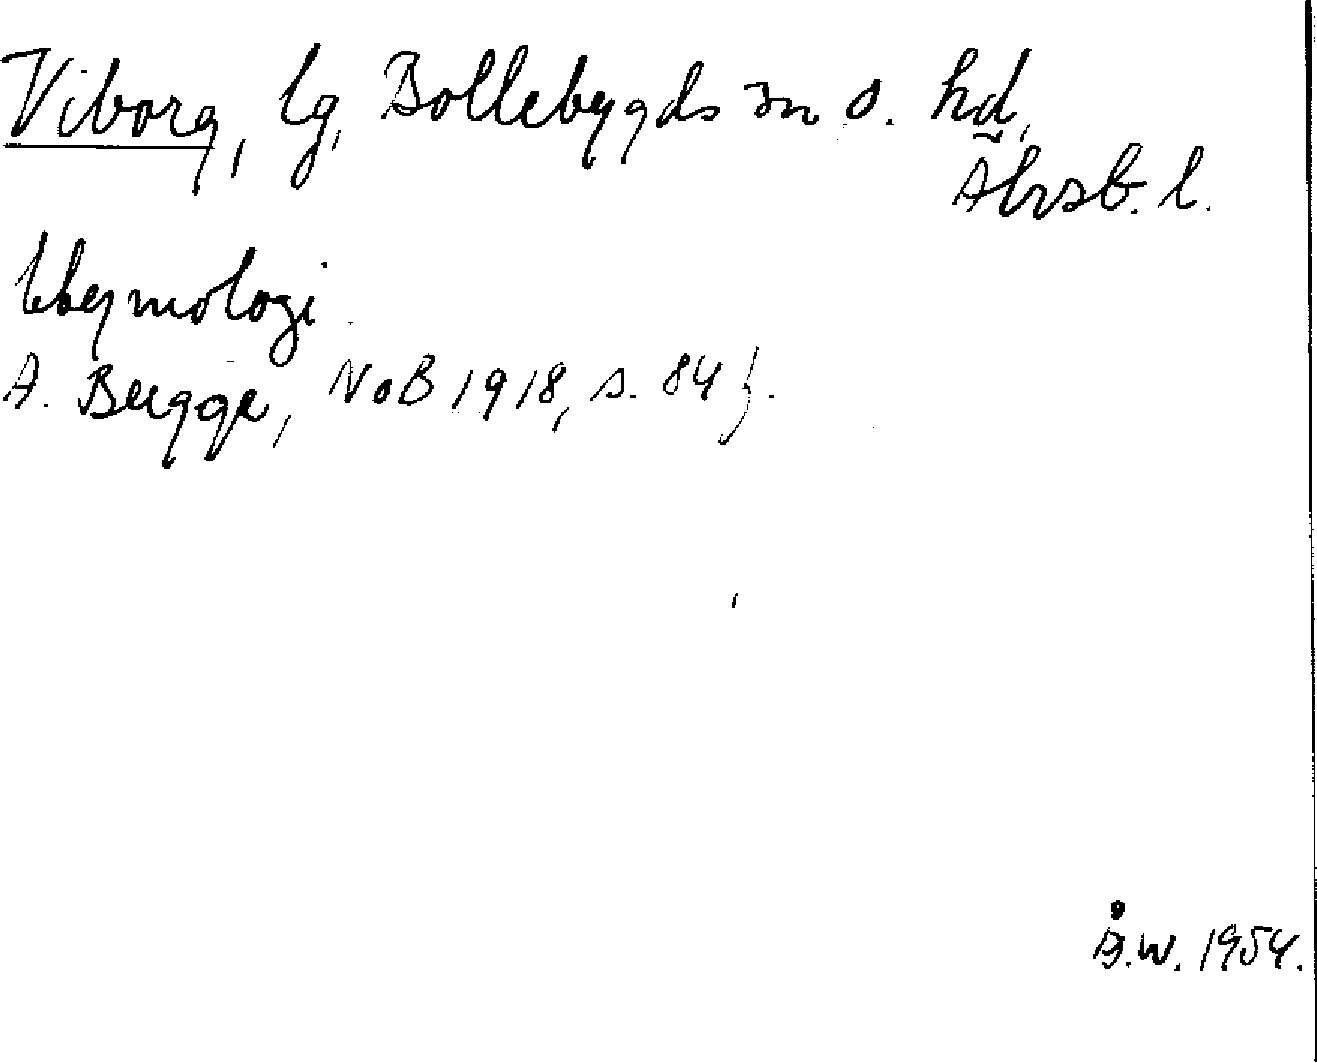 Viborg, lg, Bollebygds sn o. hd,
Älvsb. l.
Etymologi
A. Bugge, NoB 1918, s. 84 f.
Å.W. 1954.